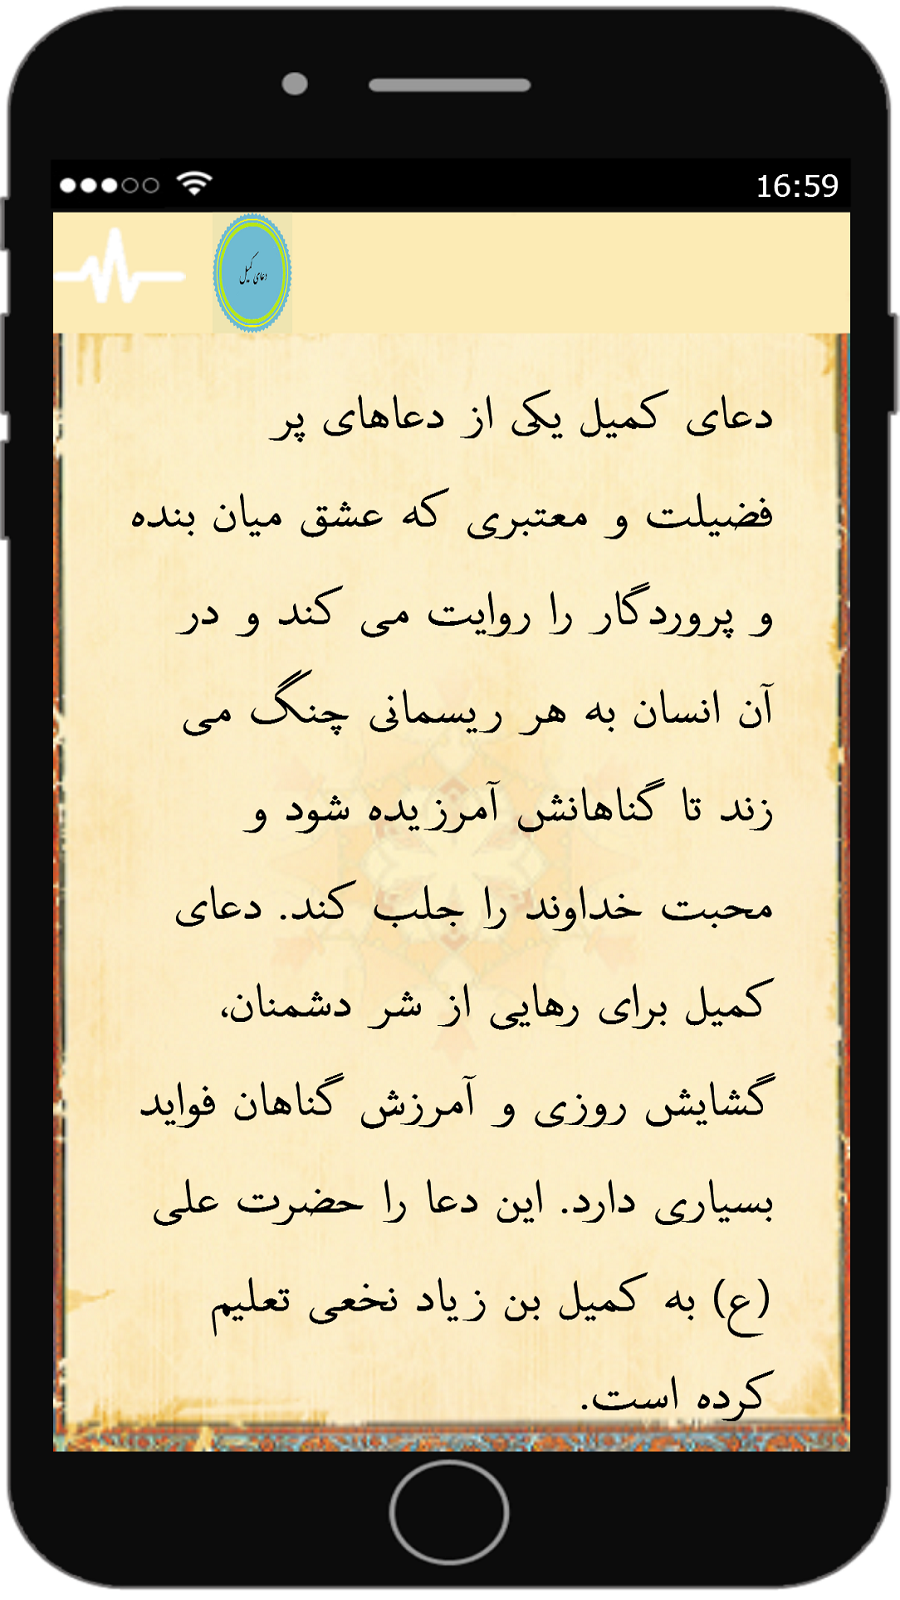 16:59
دعای کمیل
دعای کمیل یکی از دعاهای پر
فضیلت و معتبری که عشق میان بنده
و پروردگار را روایت می کند و در
آن انسان به هر ریسمانی چنگ می
زند تا گناهانش آمرزیده شود و
محبت خداوند را جلب کند. دعای
کمیل برای رهایی از شر دشمنان،
گشایش روزی و آمرزش گناهان فواید
بسیاری دارد. این دعا را حضرت علی
(ع) به کمیل بن زیاد نخعی تعلیم
کرده است.